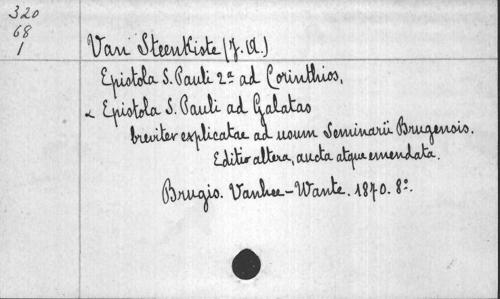 320
68
1
Van Steenkiste (J. A.)
Epistola S. Pauli 2ª ad Corinthios,
& Epistola S. Pauli ad Galatas
breviter explicatae ad usum Seminarii Brugensis.
Editio altera, aucta atque emendata.
Brugis. Vanhee-Wante. 1870. 8º.